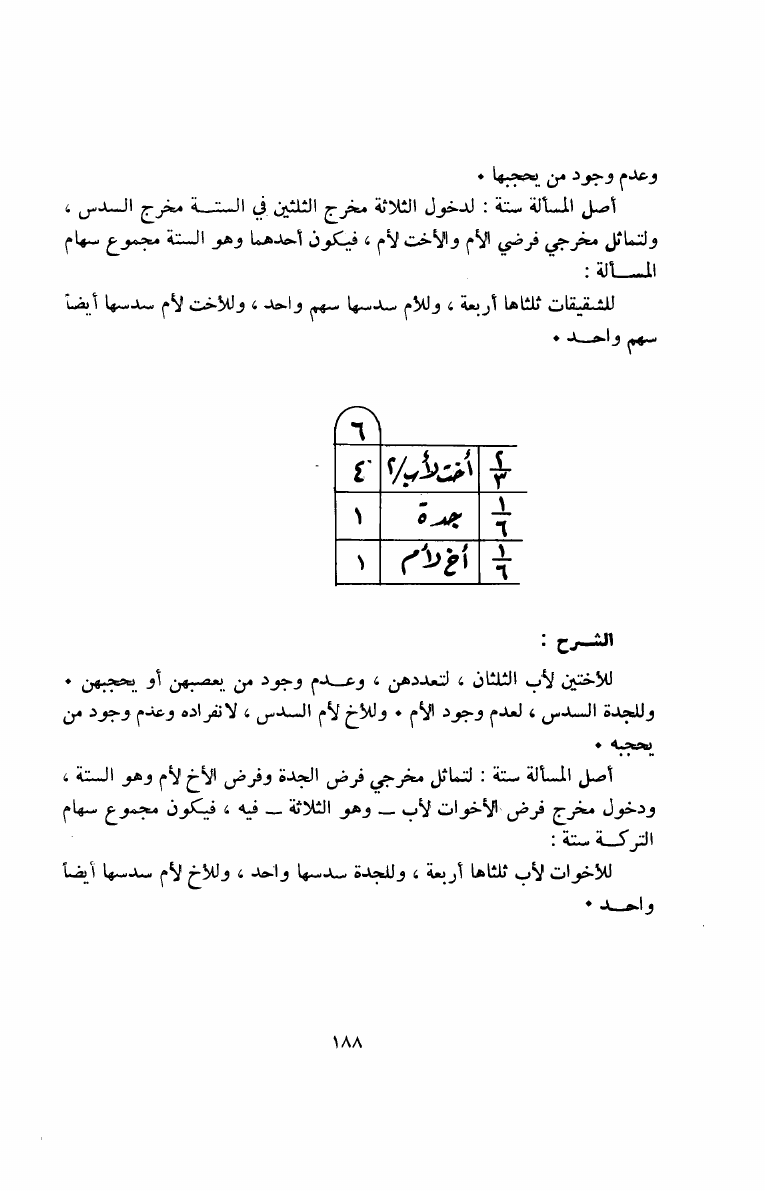 وعدم وجود من يحجبها .
أصل المسألة ستة : لدخول الثلاثة مخرج الثلثين في الستـة مخرج السدس ،
ولتماثل مخرجي فرضي الأم والأخت لأم ، فيكون أحدهما وهو الستة مجموع سهام
المسـألة :
للشقيقات ثلثاها أربعة ، وللأم سدسها سهم واحد ، وللأخت لأم سدسها أيضاً
سهم واحـد .
٦
٢/٣ أخت لأب/٢ ٤
١/٦ جدة ١
١/٦ أخ لأم ١
الشـرح :
للأختين لأب الثلثان ، لتعددهن ، وعـدم وجود من يعصبهن أو يحجبهن .
وللجدة السدس ، لعدم وجود الأم . وللأخ لأم السدس ، لانفراده وعدم وجود من
يحجبه .
أصل المسألة ستة : لتماثل مخرجي فرض الجدة وفرض الأخ لأم وهو الستة ،
ودخول مخرج فرض الأخوات لأب ــ وهو الثلاثة ــ فيه ، فيكون مجموع سهام
التركـة ستة :
للأخوات لأب ثلثاها أربعة ، وللجدة سدسها واحد ، وللأخ لأم سدسها أيضاً
واحـد .
١٨٨